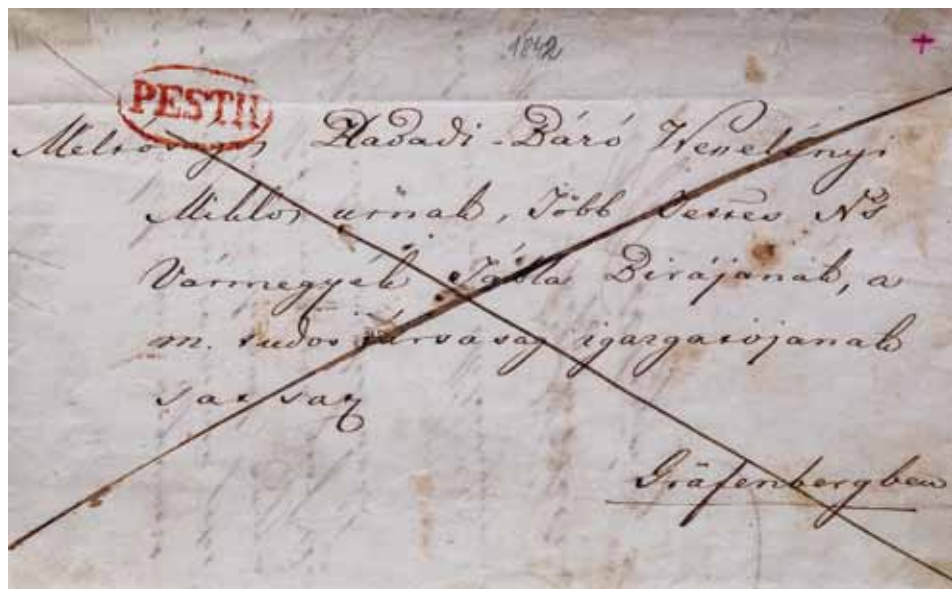 1842
PESTH
Méltóságos Hadadi-Báró Wesselényi
Miklos urnak, Több Tettes Ns
Vármegyék Tábla Birájának, a
m. tudos társaság igazgatojanak
sat sat
Gräfenbergben